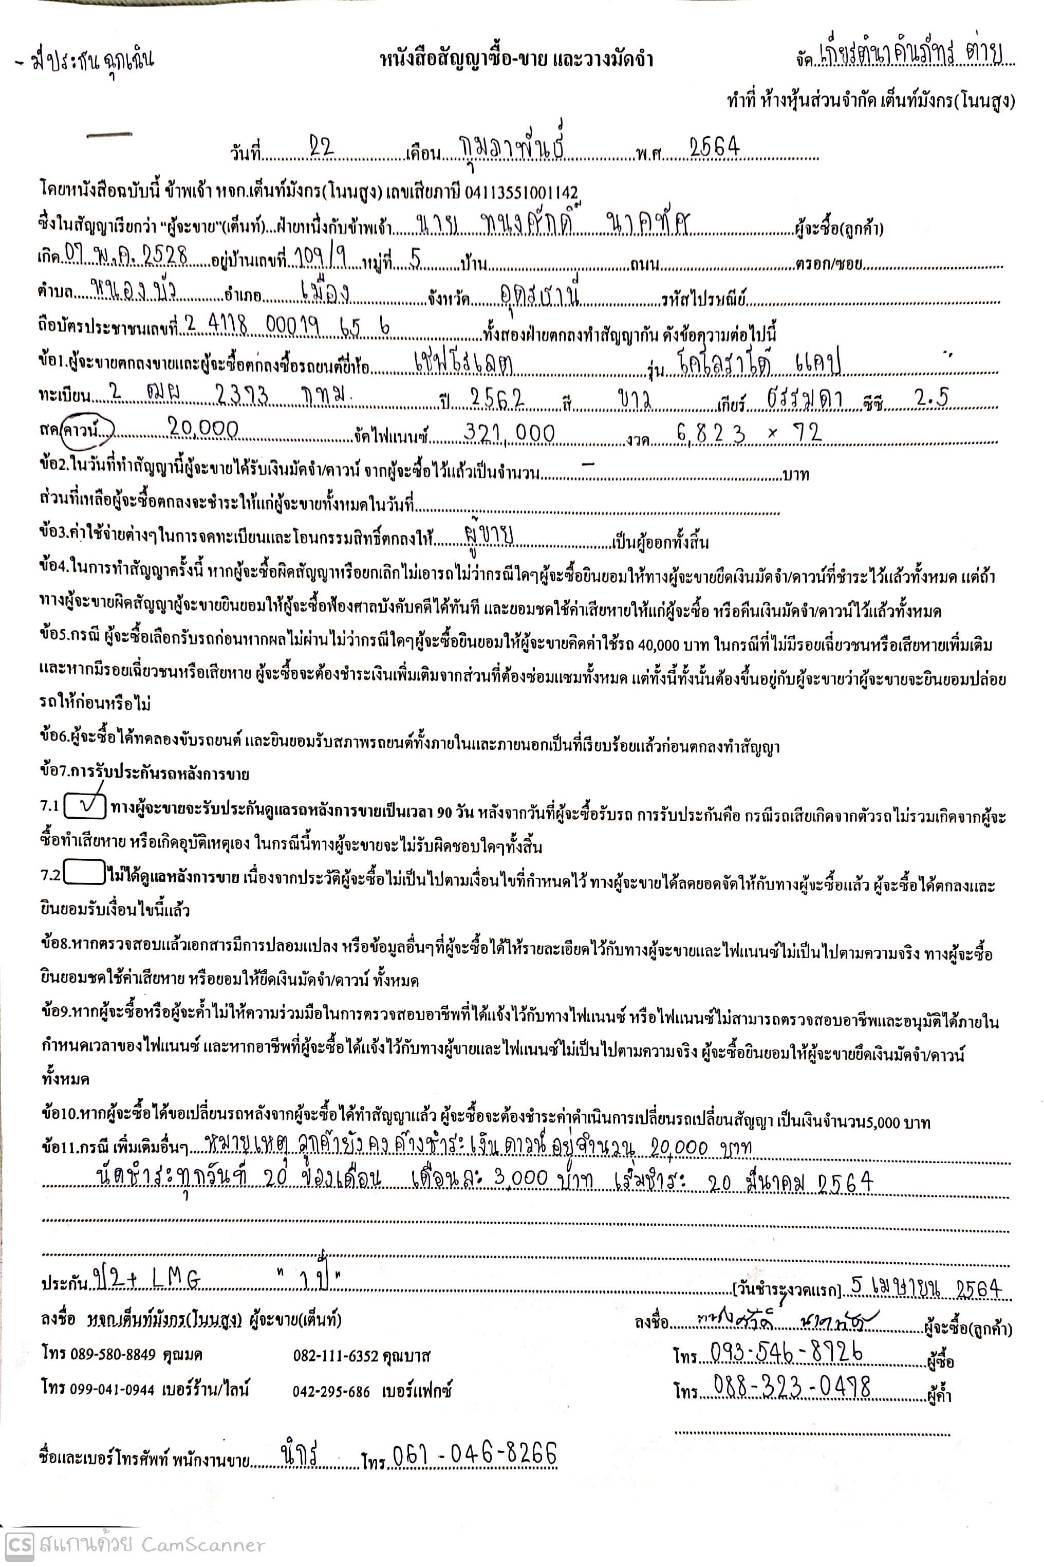 - มีประกัน ฉุกเฉิน
หนังสือสัญญาซื้อ-ขาย และวางมัดจำ
จัด เกียรตินาคินภัทร ต่าย
ทำที่ ห้างหุ้นส่วนจำกัด เต็นท์มังกร(โนนสูง)
วันที่ 22 เดือน กุมภาพันธ์ พ.ศ 2564
โดยหนังสือฉบับนี้ ข้าพเจ้า หจก.เต็นท์มังกร(โนนสูง) เลขเสียภาษี 04113551001142
ซึ่งในสัญญาเรียกว่า "ผู้จะขาย"(เต็นท์)...ฝ่ายหนึ่งกับข้าพเจ้า นาย ทนงศักดิ์ นาคทัศ ผู้จะซื้อ(ลูกค้า)
เกิด 07 พ.ค. 2528 อยู่บ้านเลขที่ 109/9 หมู่ที่ 5 บ้าน ถนน ตรอก/ซอย
ตำบล หนองบัว อำเภอ เมือง จังหวัด อุดรธานี รหัสไปรษณีย์
ถือบัตรประชาชนเลขที่ 2 4118 00019 65 6 ทั้งสองฝ่ายตกลงทำสัญญากัน ดังข้อความต่อไปนี้
ข้อ1.ผู้จะขายตกลงขายและผู้จะซื้อตกลงซื้อรถยนต์ยี่ห้อ เชฟโรเลต รุ่น โคโลราโด้ แคป
ทะเบียน 2 ฒผ 2373 กทม. ปี 2562 สี ขาว เกียร์ ธรรมดา ซีซี 2.5
สด/ดาวน์ 20,000 จัดไฟแนนซ์ 321,000 งวด 6,823 × 72
ข้อ2.ในวันที่ทำสัญญานี้ผู้จะขายได้รับเงินมัดจำ/ดาวน์ จากผู้จะซื้อไว้แล้วเป็นจำนวน - บาท
ส่วนที่เหลือผู้จะซื้อตกลงจะชำระให้แก่ผู้จะขายทั้งหมดในวันที่
ข้อ3.ค่าใช้จ่ายต่างๆในการจดทะเบียนและโอนกรรมสิทธิ์ตกลงให้ ผู้ขาย เป็นผู้ออกทั้งสิ้น
ข้อ4.ในการทำสัญญาครั้งนี้ หากผู้จะซื้อผิดสัญญาหรือยกเลิกไม่เอารถไม่ว่ากรณีใดๆผู้จะซื้อยินยอมให้ทางผู้จะขายยึดเงินมัดจำ/ดาวน์ที่ชำระไว้แล้วทั้งหมด แต่ถ้า
ทางผู้จะขายผิดสัญญาผู้จะขายยินยอมให้ผู้จะซื้อฟ้องศาลบังคับคดีได้ทันที และยอมชดใช้ค่าเสียหายให้แก่ผู้จะซื้อ หรือคืนเงินมัดจำ/ดาวน์ไว้แล้วทั้งหมด
ข้อ5.กรณี ผู้จะซื้อเลือกรับรถก่อนหากผลไม่ผ่านไม่ว่ากรณีใดๆผู้จะซื้อยินยอมให้ผู้จะขายคิดค่าใช้รถ 40,000 บาท ในกรณีที่ไม่มีรอยเฉี่ยวชนหรือเสียหายเพิ่มเติม
และหากมีรอยเฉี่ยวชนหรือเสียหาย ผู้จะซื้อจะต้องชำระเงินเพิ่มเติมจากส่วนที่ต้องซ่อมแซมทั้งหมด แต่ทั้งนี้ทั้งนั้นต้องขึ้นอยู่กับผู้จะขายว่าผู้จะขายจะยินยอมปล่อย
รถให้ก่อนหรือไม่
ข้อ6.ผู้จะซื้อได้ทดลองขับรถยนต์ และยินยอมรับสภาพรถยนต์ทั้งภายในและภายนอกเป็นที่เรียบร้อยแล้วก่อนตกลงทำสัญญา
ข้อ7.การรับประกันรถหลังการขาย
7.1 ✓ ทางผู้จะขายจะรับประกันดูแลรถหลังการขายเป็นเวลา 90 วัน หลังจากวันที่ผู้จะซื้อรับรถ การรับประกันคือ กรณีรถเสียเกิดจากตัวรถไม่รวมเกิดจากผู้จะ
ซื้อทำเสียหาย หรือเกิดอุบัติเหตุเอง ในกรณีนี้ทางผู้จะขายจะไม่รับผิดชอบใดๆทั้งสิ้น
7.2 ไม่ได้ดูแลหลังการขาย เนื่องจากประวัติผู้จะซื้อไม่เป็นไปตามเงื่อนไขที่กำหนดไว้ ทางผู้จะขายได้ลดยอดจัดให้กับทางผู้จะซื้อแล้ว ผู้จะซื้อได้ตกลงและ
ยินยอมรับเงื่อนไขนี้แล้ว
ข้อ8.หากตรวจสอบแล้วเอกสารมีการปลอมแปลง หรือข้อมูลอื่นๆที่ผู้จะซื้อได้ให้รายละเอียดไว้กับทางผู้จะขายและไฟแนนซ์ไม่เป็นไปตามความจริง ทางผู้จะซื้อ
ยินยอมชดใช้ค่าเสียหาย หรือยอมให้ยึดเงินมัดจำ/ดาวน์ ทั้งหมด
ข้อ9.หากผู้จะซื้อหรือผู้จะค้ำไม่ให้ความร่วมมือในการตรวจสอบอาชีพที่ได้แจ้งไว้กับทางไฟแนนซ์ หรือไฟแนนซ์ไม่สามารถตรวจสอบอาชีพและอนุมัติได้ภายใน
กำหนดเวลาของไฟแนนซ์ และหากอาชีพที่ผู้จะซื้อได้แจ้งไว้กับทางผู้ขายและไฟแนนซ์ไม่เป็นไปตามความจริง ผู้จะซื้อยินยอมให้ผู้จะขายยึดเงินมัดจำ/ดาวน์
ทั้งหมด
ข้อ10.หากผู้จะซื้อได้ขอเปลี่ยนรถหลังจากผู้จะซื้อได้ทำสัญญาแล้ว ผู้จะซื้อจะต้องชำระค่าดำเนินการเปลี่ยนรถเปลี่ยนสัญญา เป็นเงินจำนวน5,000 บาท
ข้อ11.กรณี เพิ่มเติมอื่นๆ หมายเหตุ ลูกค้ายังคงค้างชำระเงินดาวน์อยู่จำนวน 20,000 บาท
นัดชำระทุกวันที่ 20 ของเดือน เดือนละ 3,000 บาท เริ่มชำระ 20 มีนาคม 2564
ประกัน ป2+ LMG " 1 ปี" [วันชำระงวดแรก] 5 เมษายน 2564
ลงชื่อ หจก.เต็นท์มังกร(โนนสูง) ผู้จะขาย(เต็นท์) ลงชื่อ ทนงศักดิ์ นาคทัศ ผู้จะซื้อ(ลูกค้า)
โทร 089-580-8849 คุณมด 082-111-6352 คุณบาส โทร 093-546-8726 ผู้ซื้อ
โทร 099-041-0944 เบอร์ร้าน/ไลน์ 042-295-686 เบอร์แฟกซ์ โทร 088-323-0478 ผู้ค้ำ
ชื่อและเบอร์โทรศัพท์ พนักงานขาย นิกร โทร 061-046-8266
CS สแกนด้วย CamScanner